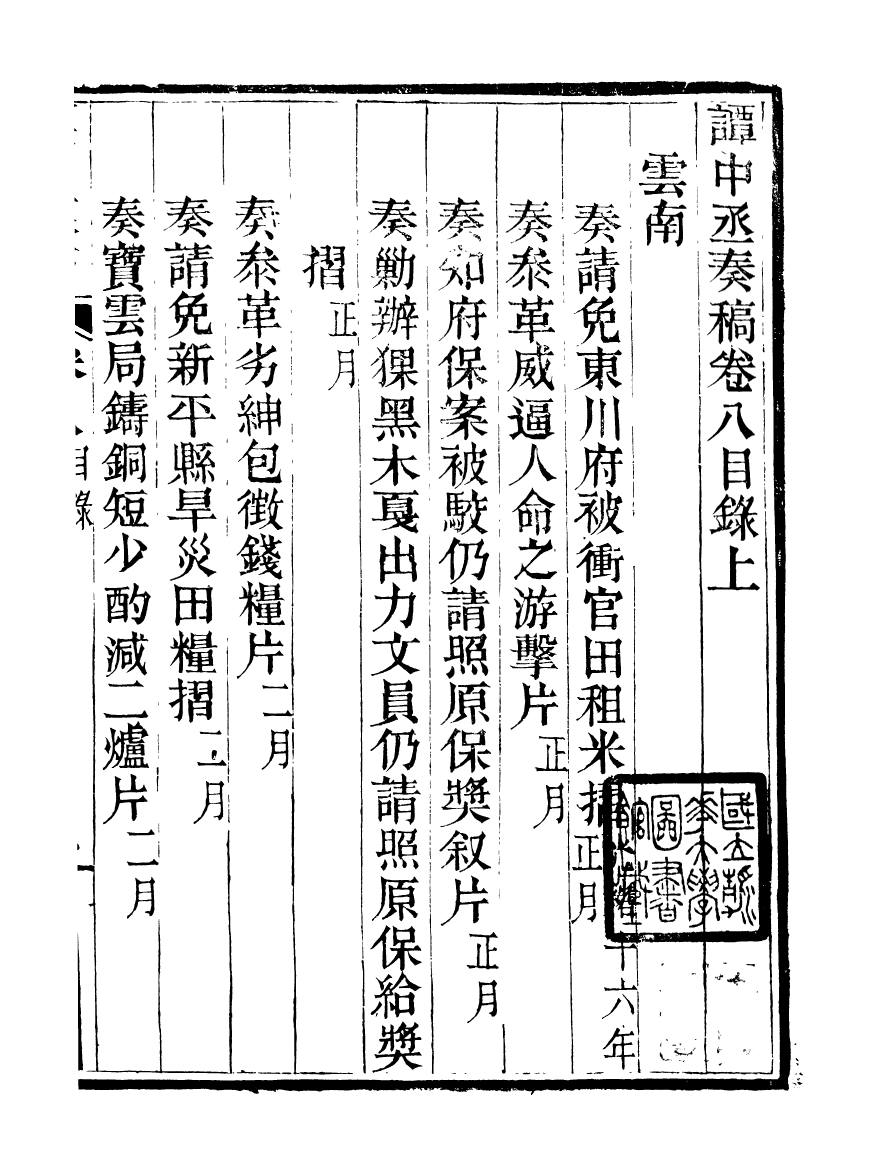 譚中丞奏稿卷八目錄上
雲南
奏請免東川府被衝官田租米摺十六年正月
奏叅革威逼人命之游擊片正月
奏知府保案被駮仍請照原保獎叙片正月
奏勦辦猓黑木戛出力文員仍請照原保給獎
摺正月
奏叅革劣紳包徵錢糧片二月
奏請免新平縣旱災田糧摺二月
奏寶雲局鑄銅短少酌減二爐片二月
卷八目錄
一
國立
華大學
圖書
館藏